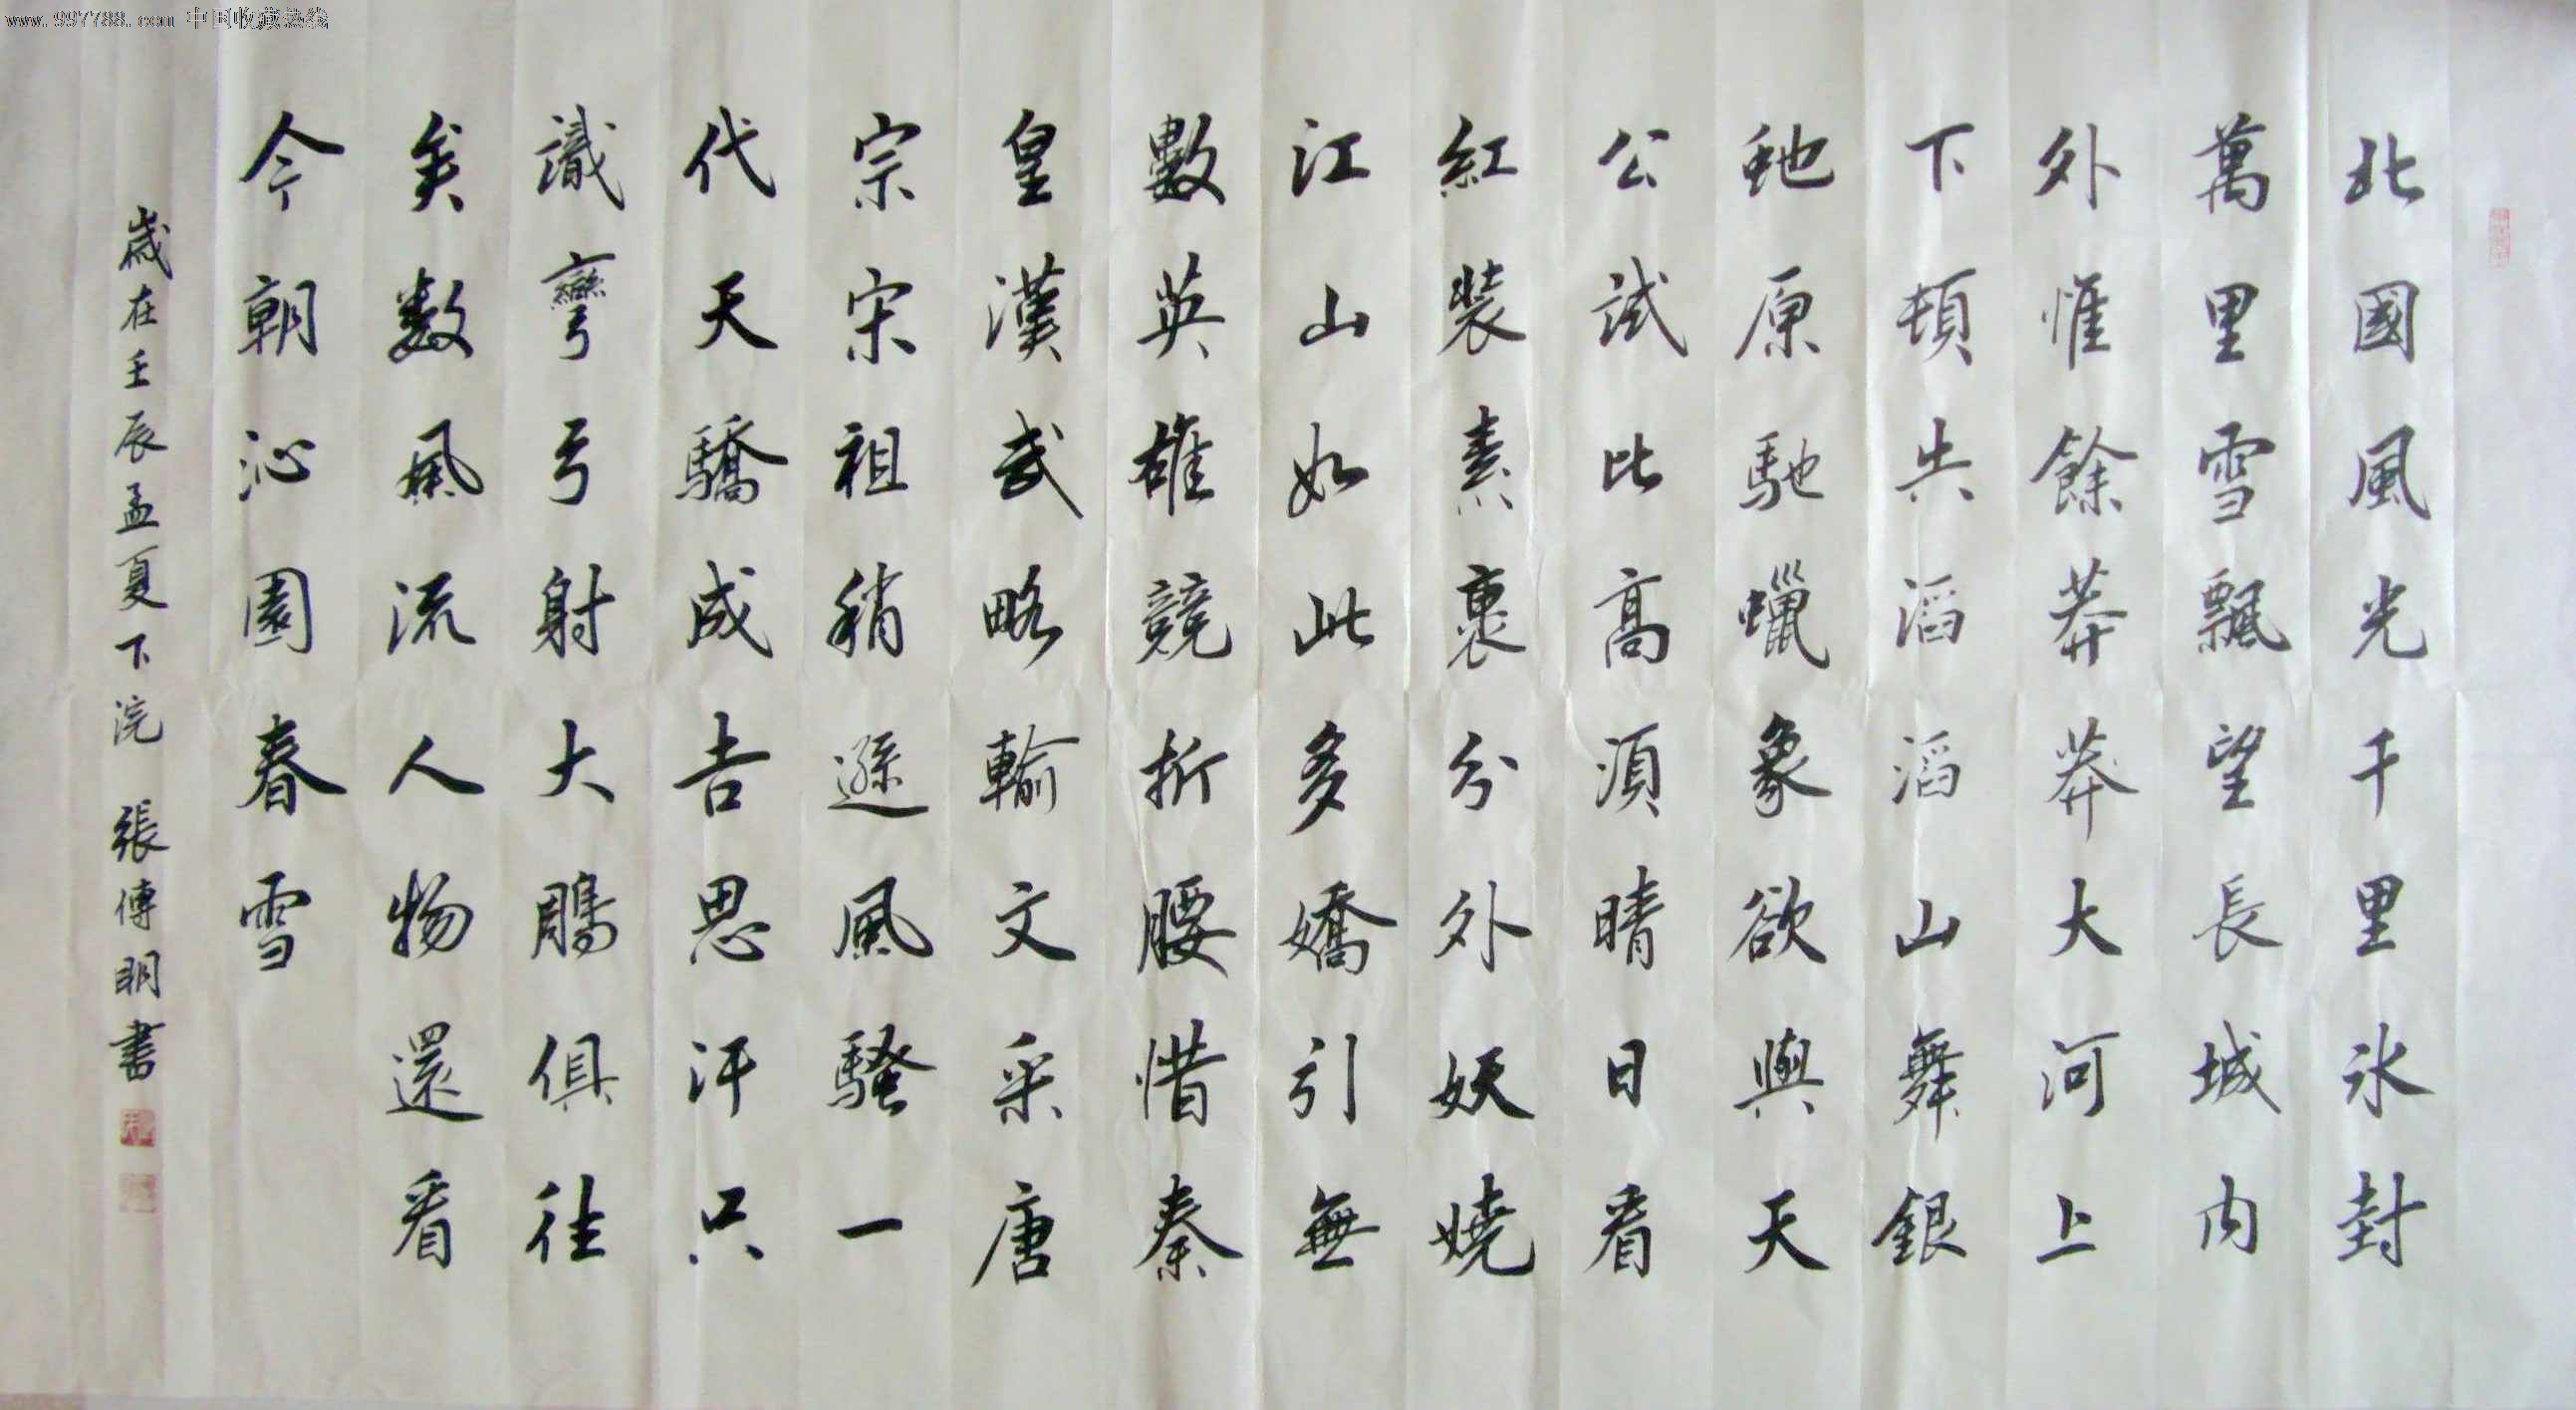 www.997788.com 中国收藏热线
北國風光千里冰封
萬里雪飄望長城内
外惟餘莽莽大河上
下頓失滔滔山舞銀
虵原馳蠟象欲與天
公試比高須晴日看
紅裝素裹分外妖嬈
江山如此多嬌引無
數英雄競折腰惜秦
皇漢武略輸文采唐
宗宋祖稍遜風騷一
代天驕成吉思汗只
識彎弓射大鵰俱往
矣數風流人物還看
今朝沁園春雪
歲在壬辰孟夏下浣 張傳明書